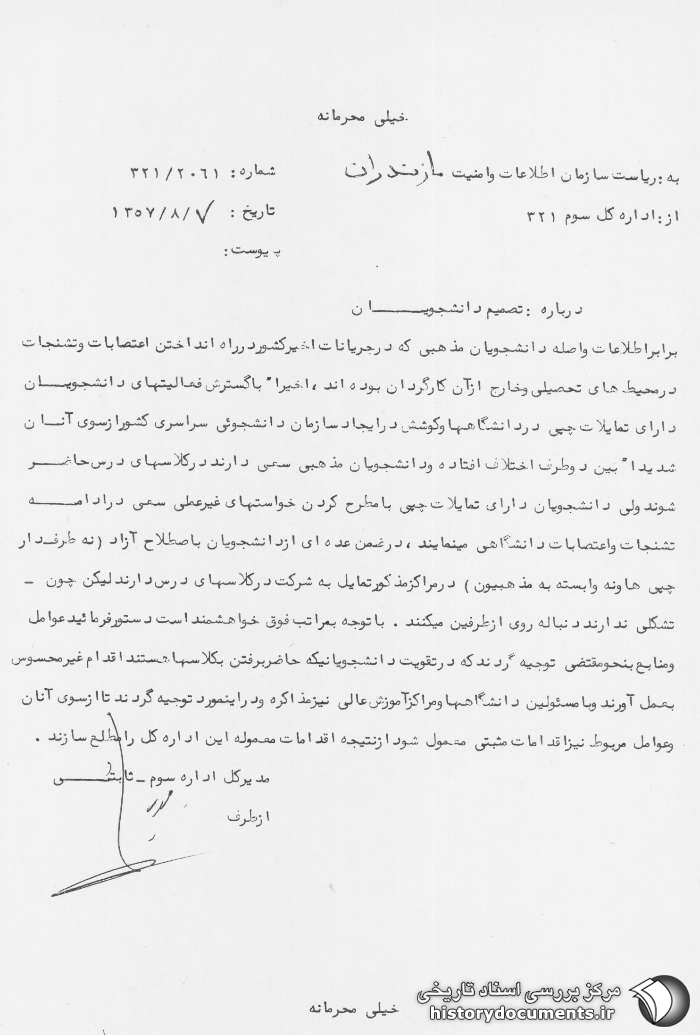 خیلی محرمانه
به : ریاست سازمان اطلاعات وامنیت مازندران
شماره : ۳۲۱/۲۰۶۱
از : اداره کل سوم ۳۲۱
تاریخ : ۱۳۵۷/۸/۷
پیوست :
درباره : تصمیم دانشجویـــــان
برابر اطلاعات واصله دانشجویان مذهبی که درجریانات اخیرکشوردرراه انداختن اعتصابات وتشنجات
درمحیط های تحصیلی وخارج ازآن کارگردان بوده اند ، اخیرا" باگسترش فعالیتهای دانشجویـــان
دارای تمایلات چپی دردانشگاهها وکوشش درایجاد سازمان دانشجوئی سراسری کشورازسوی آنـــان
شدیدا" بین دوطرف اختلاف افتاده ودانشجویان مذهبی سعی دارند درکلاسهای درس حاضـــر
شوند ولی دانشجویان دارای تمایلات چپی بامطرح کردن خواستهای غیرعملی سعی درادامـــه
تشنجات واعتصابات دانشگاهی مینمایند ، درضمن عده ای ازدانشجویان باصطلاح آزاد (نه طرفـدار
چپی ها ونه وابسته به مذهبیون) درمراکزمذکورتمایل به شرکت درکلاسهای درس دارند لیکن چون _
تشکلی ندارند دنباله روی ازطرفین میکنند . باتوجه بمراتب فوق خواهشمند است دستورفرمائید عوامل
ومنابع بنحومقتضی توجیه گردند که درتقویت دانشجویانیکه حاضربرفتن بکلاسها هستند اقدام غیرمحسوس
بعمل آورند وبا مسئولین دانشگاهها ومراکزآموزش عالی نیزمذاکره ودراینمورد توجیه گردند تا ازسوی آنان
وعوامل مربوط نیزاقدامات مثبتی معمول شود ازنتیجه اقدامات معموله این اداره کل رامطلع سازند .
مدیرکل اداره سوم _ ثابتـــی
ازطرف
خیلی محرمانه
مرکز بررسی اسناد تاریخی
historydocuments.ir